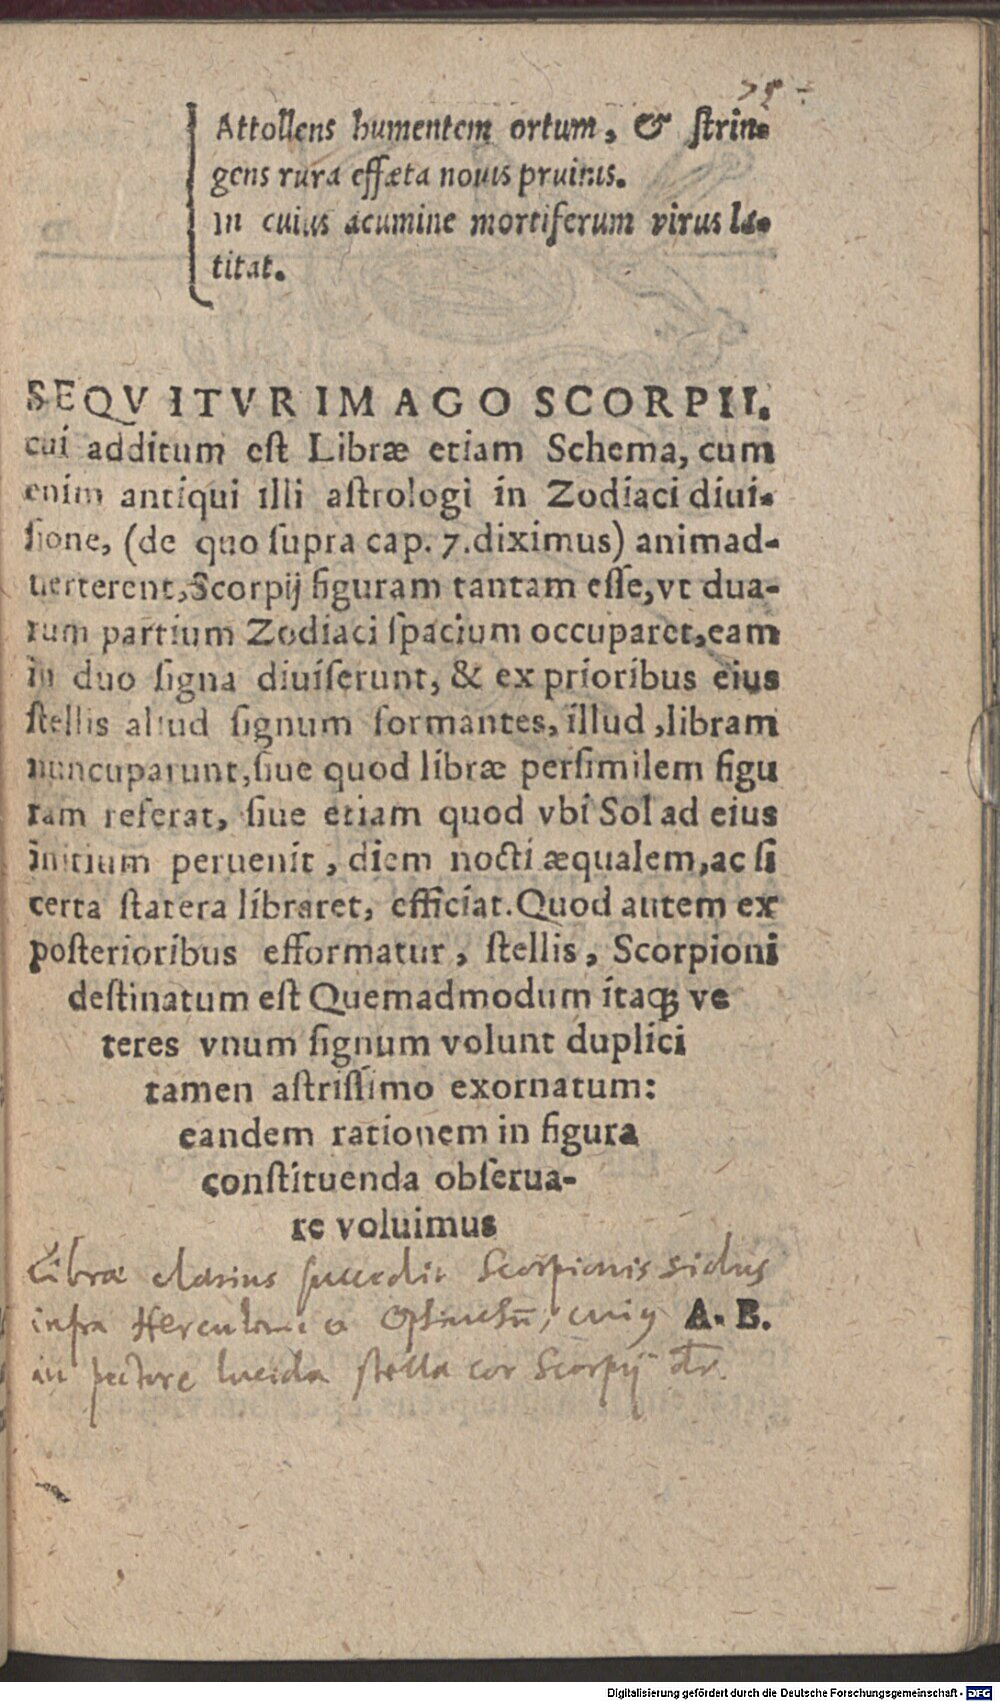 Attollens humentem ortum, & ſtrin-
gens rura effæta nouis pruinis.
In cuius acumine mortiferum virus la-
titat.
SEQVITVR IMAGO SCORPII.
cui additum eſt Libræ etiam Schema, cum
enim antiqui illi aſtrologi in Zodiaci diui-
ſione, (de quo ſupra cap. 7. diximus) animad-
uerterent, Scorpij figuram tantam eſſe, vt dua-
rum partium Zodiaci ſpacium occuparet, eam
in duo ſigna diuiſerunt, & ex prioribus eius
ſtellis aliud ſignum formantes, illud, libram
nuncuparunt, ſiue quod libræ perſimilem figu
ram referat, ſiue etiam quod vbi Sol ad eius
initium peruenit, diem nocti æqualem, ac ſi
certa ſtatera libraret, efficiat. Quod autem ex
poſterioribus efformatur, ſtellis, Scorpioni
deſtinatum eſt Quemadmodum itaqꝫ ve
teres vnum ſignum volunt duplici
tamen aſtriſſimo exornatum:
eandem rationem in figura
conſtituenda obſerua-
re voluimus
Libræ clarius ſuccedit Scorpionis sidus
infra Herculem
A. B.
in pectore lucida ſtella cor Scorpij dr.
Digitalisierung gefördert durch die Deutsche Forschungsgemeinschaft - DFG